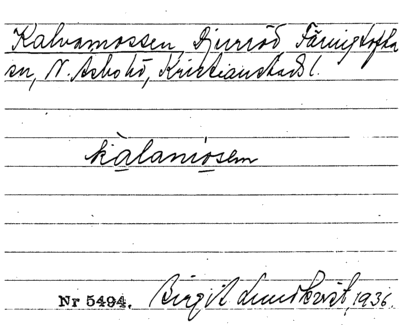 Kalvamossen, Djurröd Färingtofta
sn, N. Åsbo hd, Kristianstads l.
kàlamosen
Nr 5494. Birgit Lundkvist, 1936.